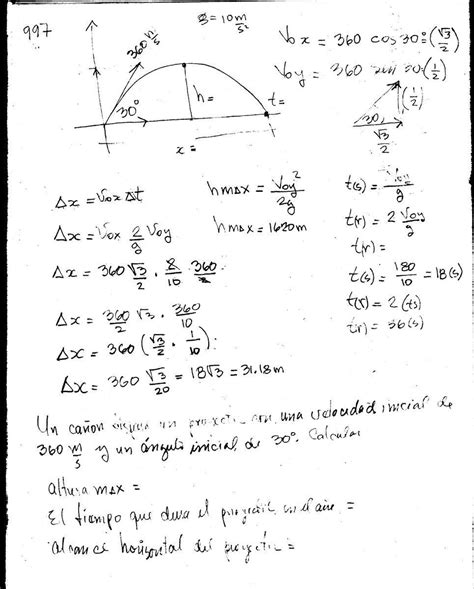 997
g = 10 m/s²
360 m/s
30°
h =
t =
x =
Vox = 360 cos 30° = (√3/2)
Voy = 360 sen 30 (1/2)
(1/2)
30
√3/2
Δx = Vox Δt
Δx = Vox 2/g Voy
Δx = 360 √3/2 · 2/10 · 360/2
Δx = 360/2 √3 · 360/10
Δx = 360 (√3/2 · 1/10) :
Δx = 360 √3/20 = 18√3 = 31.18 m
hmax = Voy²/2g
hmax = 1620 m
t(s) = Voy/g
t(r) = 2 Voy/g
t(r) =
t(s) = 180/10 = 18 (s)
t(r) = 2 (ts)
t(r) = 36 (s)
Un cañon un con una velocidad inicial de
360 m/s y un ángulo inicial de 30°. Calcular
altura max =
El tiempo que dura el en el aire =
alcance horizontal del =